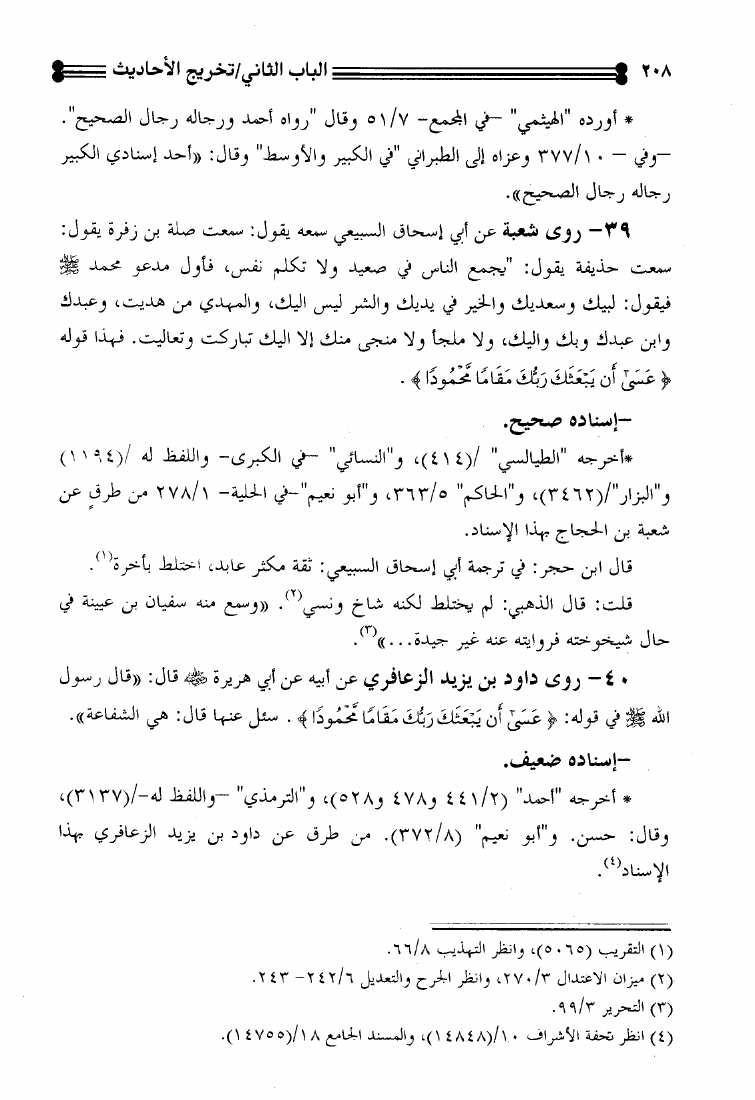 ٢٠٨ الباب الثاني/تخريج الأحاديث
* أورده "الهيثمي" –في المجمع– ٥١/٧ وقال "رواه أحمد ورجاله رجال الصحيح".
–وفي – ٣٧٧/١٠ وعزاه إلى الطبراني "في الكبير والأوسط" وقال: «أحد إسنادي الكبير
رجاله رجال الصحيح».
٣٩– روى شعبة عن أبي إسحاق السبيعي سمعه يقول: سمعت صلة بن زفرة يقول:
سمعت حذيفة يقول: "يجمع الناس في صعيد ولا تكلم نفس، فأول مدعو محمد ﷺ
فيقول: لبيك وسعديك والخير في يديك والشر ليس اليك، والمهدي من هديت، وعبدك
وابن عبدك وبك واليك، ولا ملجأ ولا منجى منك إلا اليك تباركت وتعاليت. فهذا قوله
﴿ عَسَىٰٓ أَن يَبْعَثَكَ رَبُّكَ مَقَامًا مَّحْمُودًا ﴾ .
–إسناده صحيح.
*أخرجه "الطيالسي" /(٤١٤)، و"النسائي" –في الكبرى– واللفظ له /(١١٩٤)
و"البزار"/(٣٤٦٢)، و"الحاكم" ٣٦٣/٥، و"أبو نعيم"–في الحلية– ٢٧٨/١ من طرقٍ عن
شعبة بن الحجاج بهذا الإسناد.
قال ابن حجر: في ترجمة أبي إسحاق السبيعي: ثقة مكثر عابد، اختلط بأخرة(١).
قلت: قال الذهبي: لم يختلط لكنه شاخ ونسي(٢). «وسمع منه سفيان بن عيينة في
حال شيخوخته فروايته عنه غير جيدة...»(٣).
٤٠– روى داود بن يزيد الزعافري عن أبيه عن أبي هريرة ﷺ قال: «قال رسول
الله ﷺ في قوله: ﴿ عَسَىٰٓ أَن يَبْعَثَكَ رَبُّكَ مَقَامًا مَّحْمُودًا ﴾ . سئل عنها قال: هي الشفاعة».
–إسناده ضعيف.
* أخرجه "أحمد" (٤٤١/٢ و٤٧٨ و٥٢٨)، و"الترمذي" –واللفظ له–/(٣١٣٧)،
وقال: حسن. و"أبو نعيم" (٣٧٢/٨). من طرق عن داود بن يزيد الزعافري بهذا
الإسناد(٤).
(١) التقريب (٥٠٦٥)، وانظر التهذيب ٦٦/٨.
(٢) ميزان الاعتدال ٢٧٠/٣، وانظر الجرح والتعديل ٢٤٢/٦– ٢٤٣.
(٣) التحرير ٩٩/٣.
(٤) انظر تحفة الأشراف ١٠/(١٤٨٤٨)، والمسند الجامع ١٨/(١٤٧٥٥).